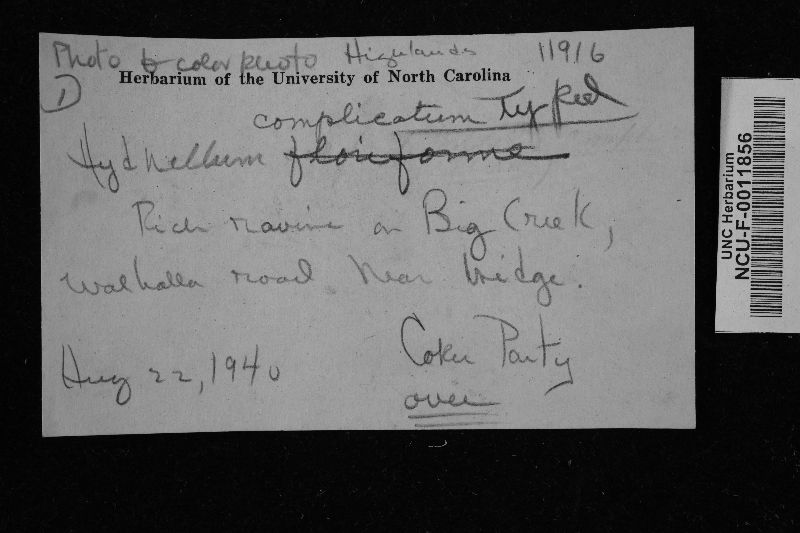 Photo & color photo Highlands 11916
1) Herbarium of the University of North Carolina
complicatum Typed
Hydnellum floriforme
Rich ravine on Big Creek,
Walhalla road near bridge.
Aug 22, 1940 Coker Party
over
UNC Herbarium
NCU-F-0011856